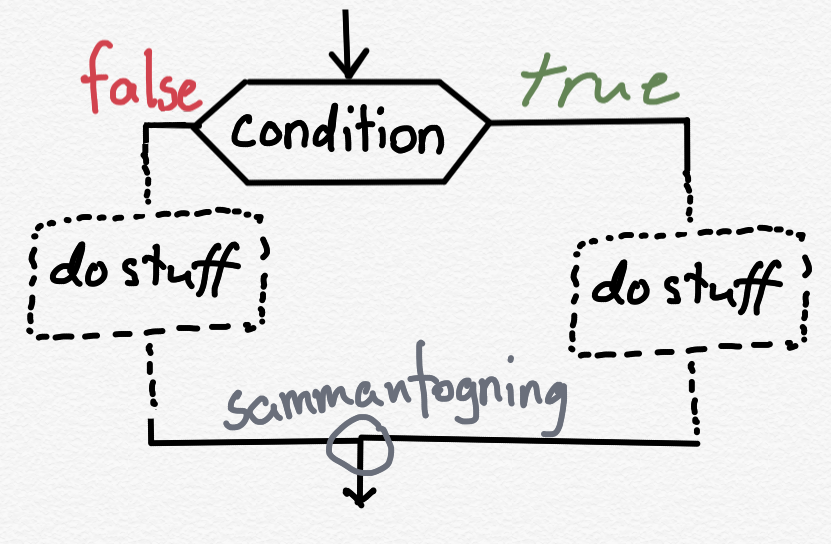 false
true
condition
do stuff
do stuff
sammantogning